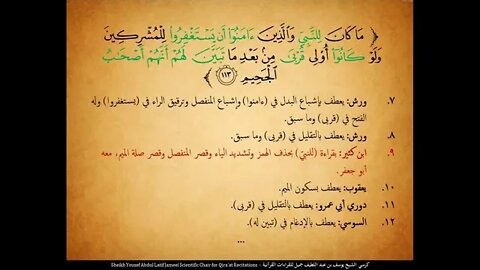 مَا كَانَ لِلنَّبِيِّ وَالَّذِينَ ءَامَنُوٓا۟ أَن يَسْتَغْفِرُوا۟ لِلْمُشْرِكِينَ
وَلَوْ كَانُوٓا۟ أُو۟لِى قُرْبَىٰ مِنۢ بَعْدِ مَا تَبَيَّنَ لَهُمْ أَنَّهُمْ أَصْحَٰبُ
ٱلْجَحِيمِ ١١٣
٧. ورش: يعطف بإشباع البدل في (ءامنوا) وإشباع المنفصل وترقيق الراء في (يستغفروا) وله
الفتح في (قربى) وما سبق.
٨. ورش: يعطف بالتقليل في (قربى) وما سبق.
٩. ابن كثير: بقراءة (للنبيّ) بحذف الهمز وتشديد الياء وقصر المنفصل وقصر صلة الميم، معه
أبو جعفر.
١٠. يعقوب: يعطف بسكون الميم.
١١. دوري أبي عمرو: يعطف بالتقليل في (قربى).
١٢. السوسي: يعطف بالإدغام في (تبين له).
...
Sheikh Yousef Abdul Latif Jameel Scientific Chair for Qira'at Recitations - كرسي الشيخ يوسف بن عبد اللطيف جميل للقراءات القرآنية